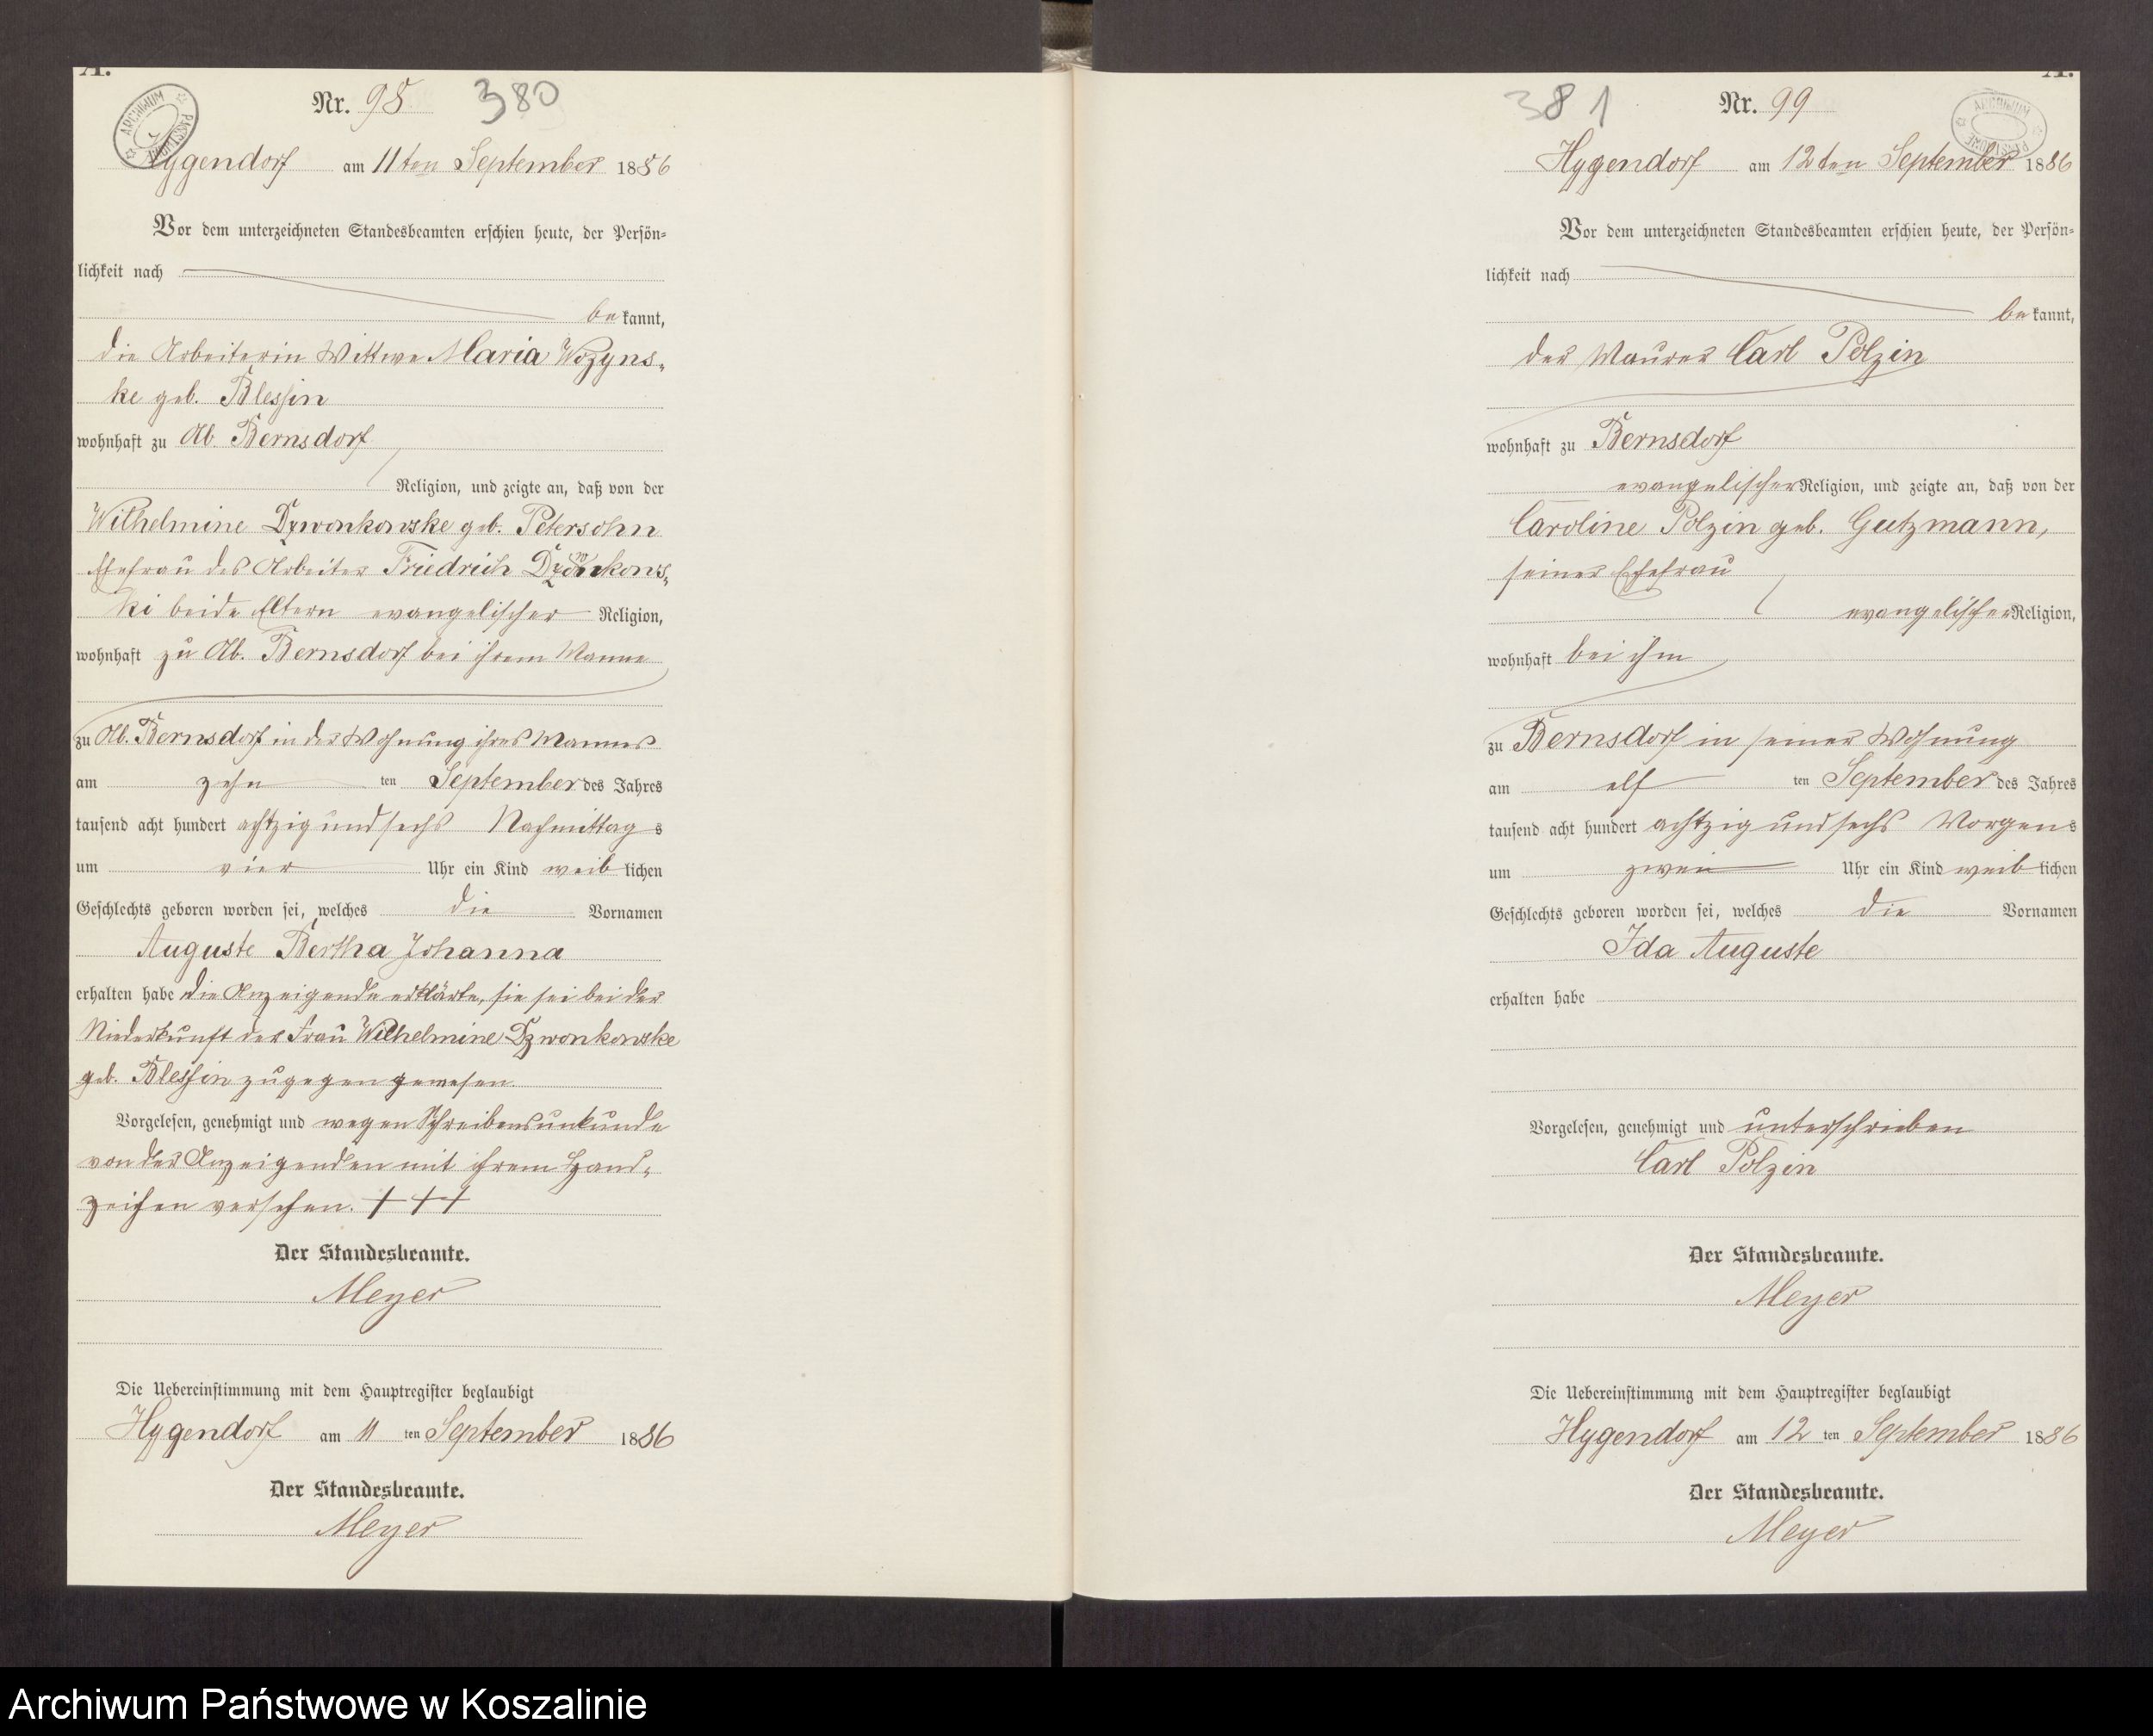 A.
ARCHIWUM PAŃSTWOWE
Nr. 98 380
Hygendorf am 11ten September 1886
Vor dem unterzeichneten Standesbeamten erschien heute, der Persön-
lichkeit nach
be kannt,
die Arbeiterin Wittwe Maria Wozyns-
ke geb. Blessin
wohnhaft zu Alb. Bernsdorf
Religion, und zeigte an, daß von der
Wilhelmine Dzwonkowske geb. Petersohn
Ehefrau des Arbeiter Friedrich Dzwonkows-
ki beide Eltern evangelischer Religion,
wohnhaft zu Alb. Bernsdorf bei ihrem Manne
zu Alb. Bernsdorf in der Wohnung ihres Mannes
am zehn ten September des Jahres
tausend acht hundert achtzig und sechs Nachmittag s
um vier Uhr ein Kind weib lichen
Geschlechts geboren worden sei, welches die Vornamen
Auguste Bertha Johanna
erhalten habe die Anzeigende erklärte, sie sei bei der
Niederkunft der Frau Wilhelmine Dzwonkowske
geb. Blessin zugegen gewesen.
Vorgelesen, genehmigt und wegen Schreibensunkunde
von der Anzeigenden mit ihrem Hand-
zeichen versehen. +++
Der Standesbeamte.
Meyer
Die Uebereinstimmung mit dem Hauptregister beglaubigt
Hygendorf am 11 ten September 1886
Der Standesbeamte.
Meyer
A.
381 Nr. 99
ARCHIWUM PAŃSTWOWE
Hygendorf am 12ten September 1886
Vor dem unterzeichneten Standesbeamten erschien heute, der Persön-
lichkeit nach
be kannt,
der Maurer Carl Polzin
wohnhaft zu Bernsdorf
evangelischer Religion, und zeigte an, daß von der
Caroline Polzin geb. Gutzmann,
seiner Ehefrau
evangelischer Religion,
wohnhaft bei ihm
zu Bernsdorf in seiner Wohnung
am elf ten September des Jahres
tausend acht hundert achtzig und sechs Morgen s
um zwei Uhr ein Kind weib lichen
Geschlechts geboren worden sei, welches die Vornamen
Ida Auguste
erhalten habe
Vorgelesen, genehmigt und unterschrieben
Carl Polzin
Der Standesbeamte.
Meyer
Die Uebereinstimmung mit dem Hauptregister beglaubigt
Hygendorf am 12 ten September 1886
Der Standesbeamte.
Meyer
Archiwum Państwowe w Koszalinie